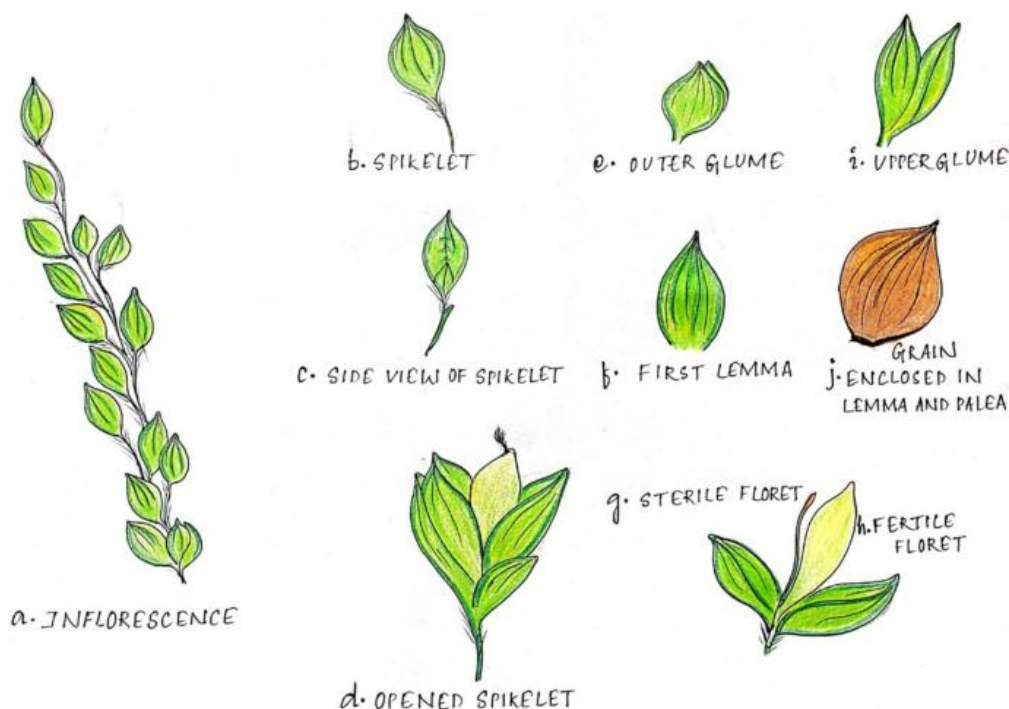 b. SPIKELET
e. OUTER GLUME
i. UPPER GLUME
c. SIDE VIEW OF SPIKELET
f. FIRST LEMMA
GRAIN
j. ENCLOSED IN
LEMMA AND PALEA
g. STERILE FLORET
h. FERTILE
FLORET
a. INFLORESCENCE
d. OPENED SPIKELET